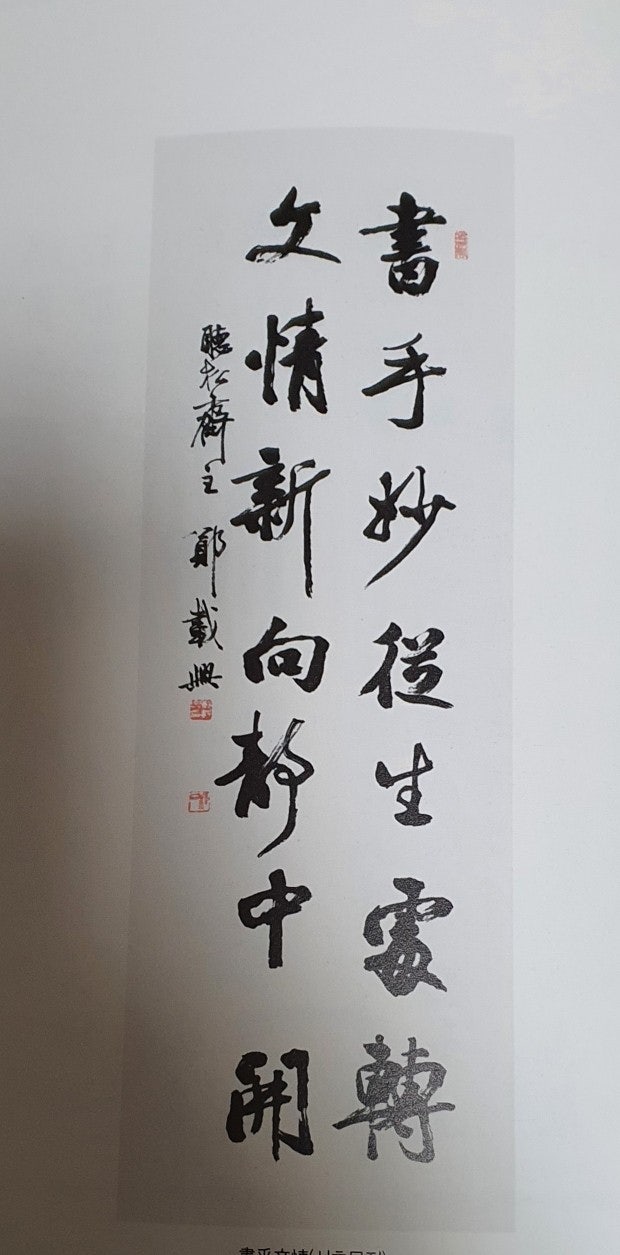 書手妙從生處轉
文情新向靜中開
聽松齋主 鄭載興